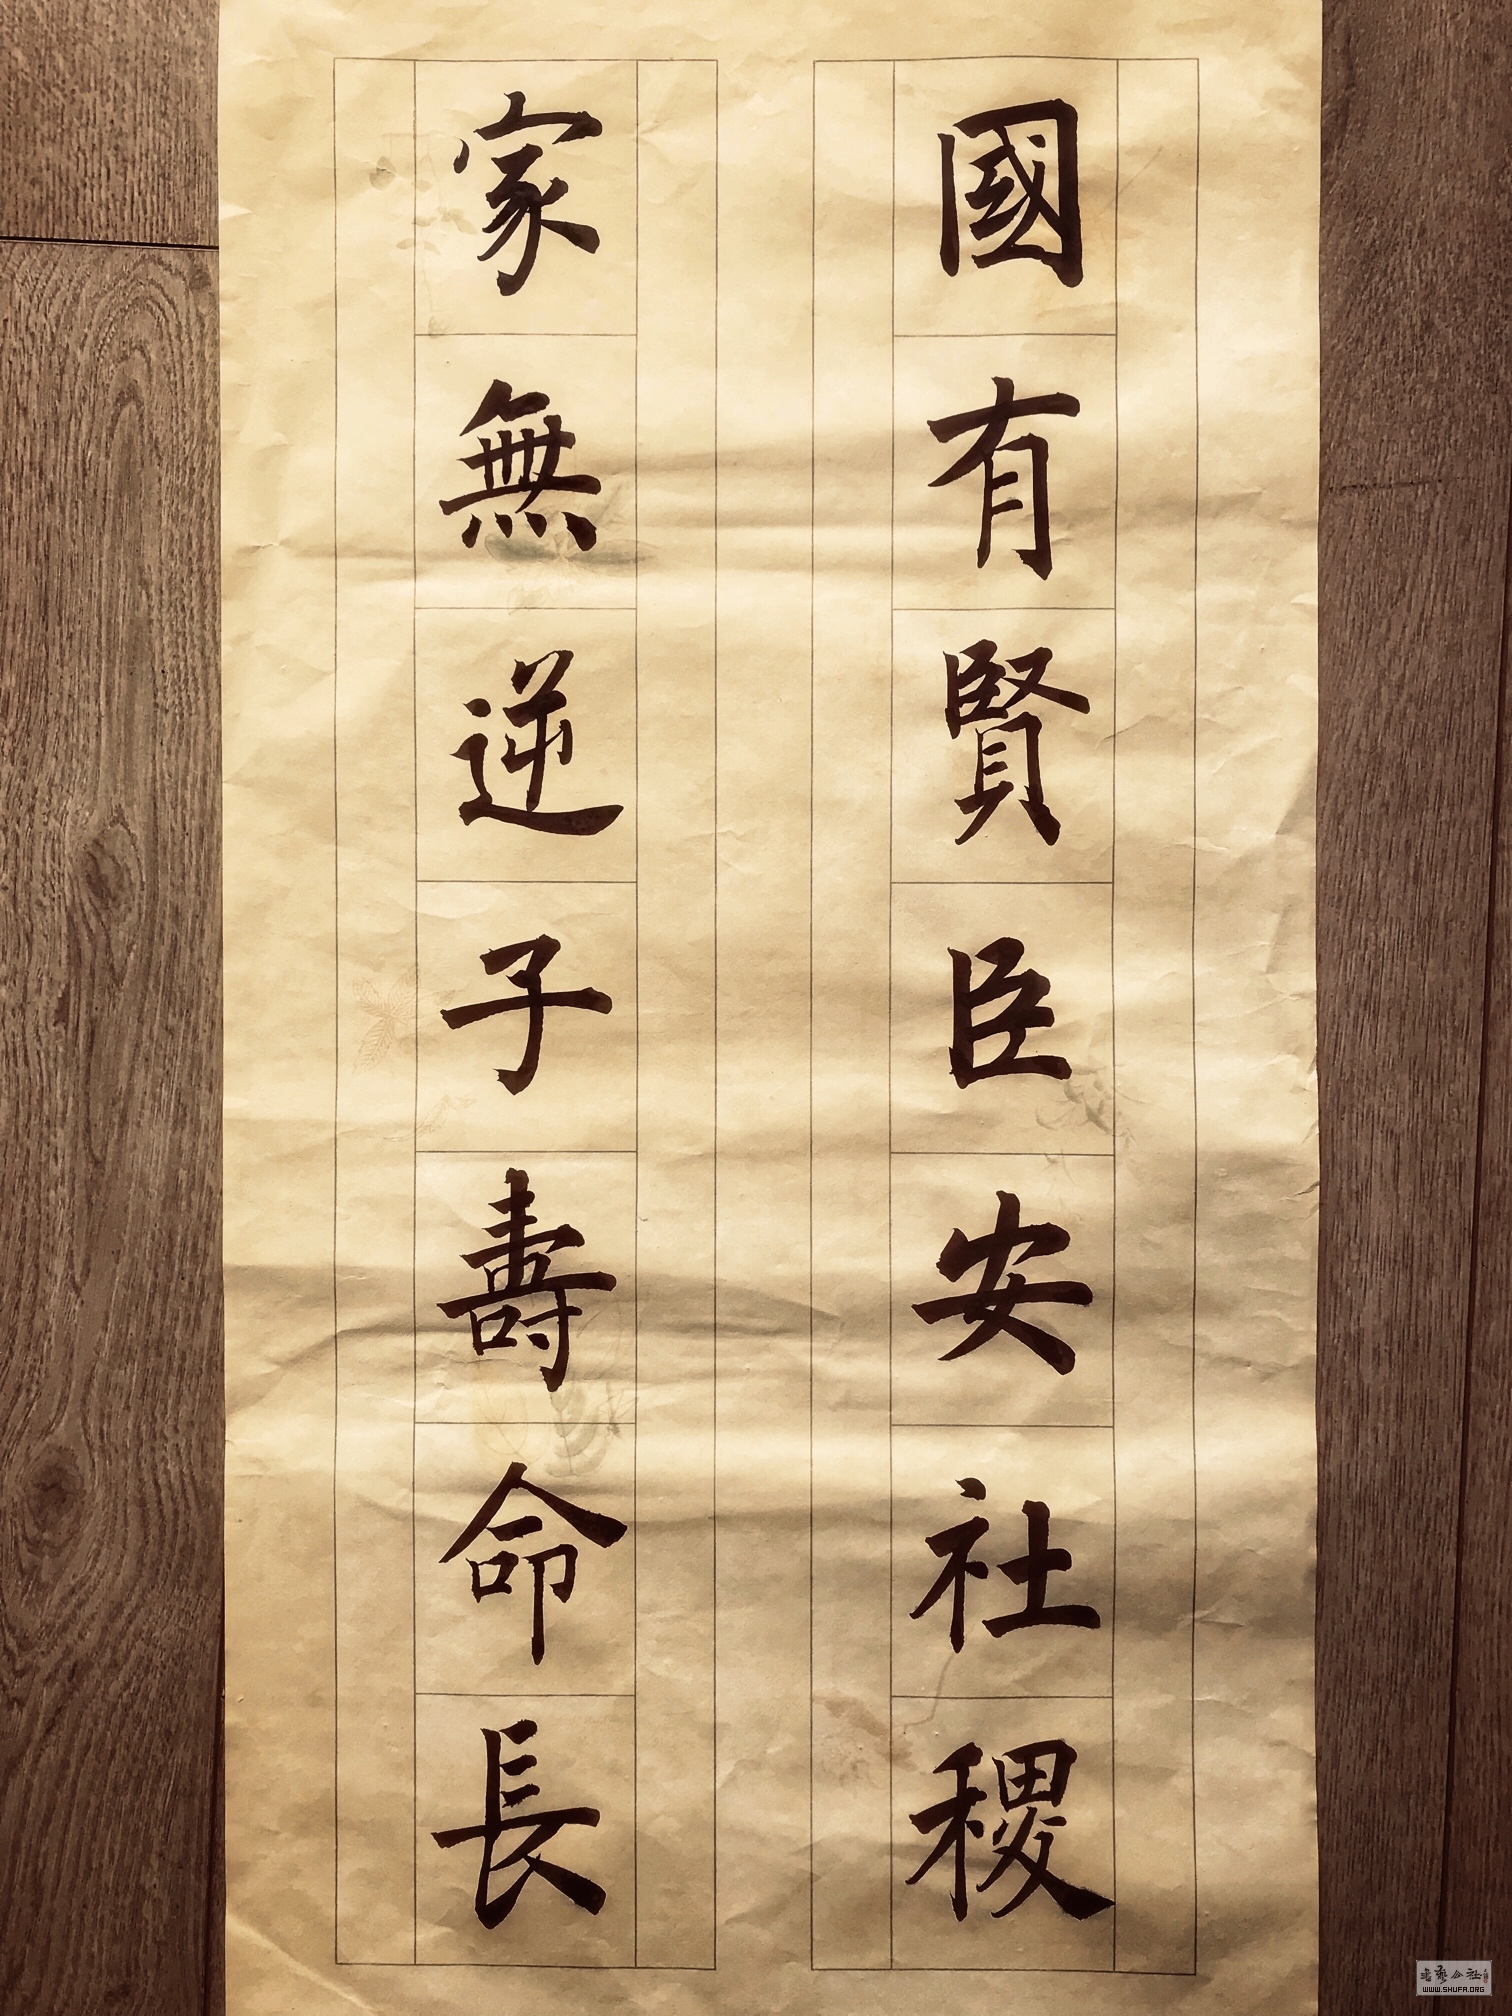 國有賢臣安社稷
家無逆子壽命長
書藝公社
WWW.SHUFA.ORG